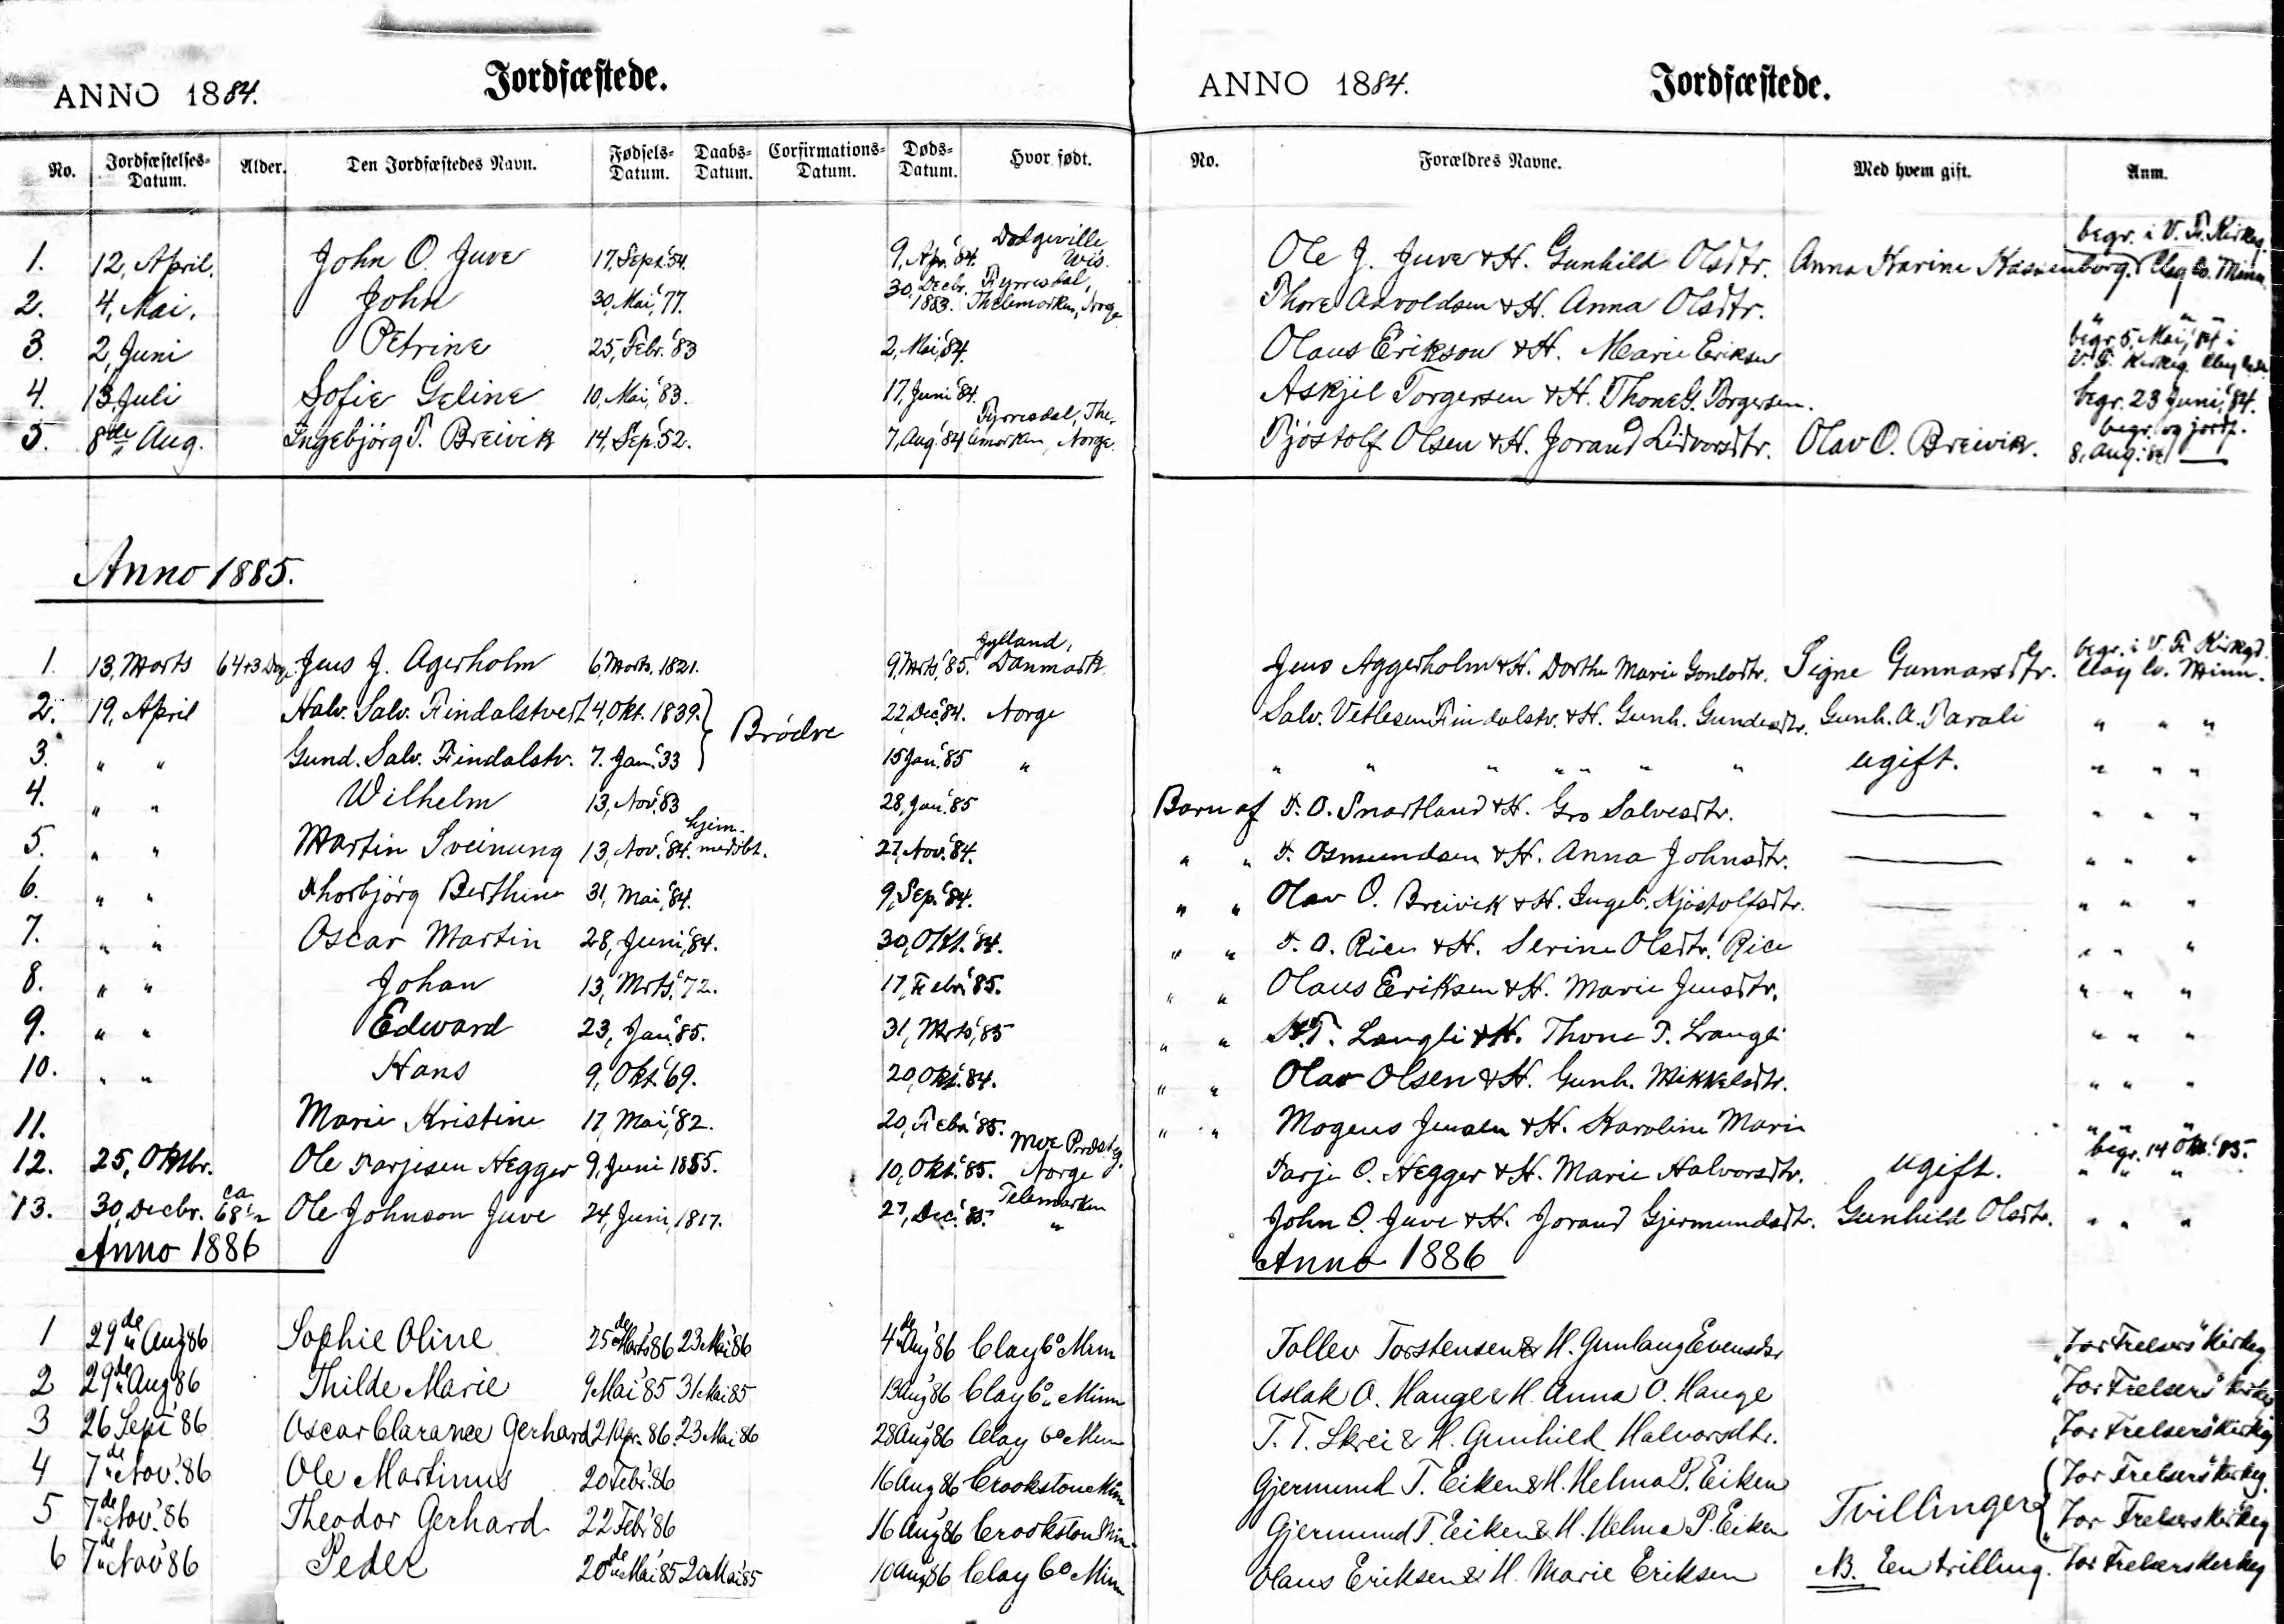 ANNO 1884.
Jordfæstede.
No. Jordfæstelses-Datum. Alder. Den Jordfæstedes Navn. Fødsels-Datum. Daabs-Datum. Corfirmations-Datum. Døds-Datum. Hvor født.
1. 12, April. John O. Juve 17, Sept. '54. 9, Apr. '84. Dodgeville, Wis.
2. 4, Mai. John 30, Mai, '77. 30, Decbr. 1883. Fyrresdal, Thelemarken, Norge
3. 2, Juni Petrine 25, Febr. '83 2, Mai, '84.
4. 13, Juli Sofie Geline 10, Mai, '83. 17, Juni '84.
5. 8de Aug. Ingebjörg T. Breivik 14, Sep. '52. 7, Aug. '84 Fyrresdal, Thelemarken, Norge.
Anno 1885.
1. 13, Marts 64+3 Dage Jens J. Agerholm 6, Marts, 1821. 9, Mrts, '85. Jylland, Danmark
2. 19, April Halv. Salv. Findalstvedt 4, Okt. 1839. } Brödre 22, Dec. '84. Norge
3. " " Gund. Salv. Findalstv. 7. Jan. '33 } 15 Jan. '85 "
4. " " Wilhelm 13, Nov. '83 28, Jan. '85
5. " " Martin Sveinung 13, Nov. '84. hjem- 27, Nov. '84.
6. " " Thorbjörg Berthine 31, Mai, '84. 9, Sep. '84.
7. " " Oscar Martin 28, Juni, '84. 30, Okt. '84.
8. " " Johan 13, Mrts, '72. 17, Febr. '85.
9. " " Edward 23, Jan. '85. 31, Mrts, '85
10. " " Hans 9, Okt. '69. 20, Okt. '84.
11. Marie Kristine 17, Mai, '82. 20, Febr. '85.
12. 25, Oktbr. Ole Tarjesen Hegger 9, Juni 1855. 10, Okt. '85. Moe Prdsteg. Norge
13. 30, Decbr. ca 68 Ole Johnson Juve 24, Juni, 1817. 27, Dec. '85. Telemarken "
Anno 1886
1 29de Aug 86 Sophie Oline 25de Marts '86 23 Mai '86 4de Aug '86 Clay Co Minn
2 29de Aug 86 Thilde Marie 9 Mai '85 31 Mai 85 13 Aug '86 Clay Co Minn
3 26 Sept '86 Oscar Clarance Gerhard 21 Apr. 86. 23 Mai 86 28 Aug '86 Clay Co Minn
4 7de Nov. '86 Ole Martinus 20 Febr. '86 16 Aug 86 Crookston Minn
5 7de Nov. '86 Theodor Gerhard 22 Febr '86 16 Aug '86 Crookston Minn
6 7de Nov '86 Peder 20de Mai '85 20 Mai '85 10 Aug '86 Clay Co Minn
ANNO 1884.
Jordfæstede.
No. Forældres Navne. Med hvem gift. Anm.
Ole J. Juve & H. Gunhild Olsdtr. Anna Karine begr. i V. F. Kirkeg. Clay Co. Minn.
Thore Asvoldsen & H. Anna Olsdtr. " " "
Olaus Erikson & H. Marie Eriksen begr. 5, Mai, '84 i V. F. Kirkeg. Clay
Askjel Torgersen & H. Thone G. Torgersen. begr. 23 Juni, '84.
Tjöstolf Olsen & H. Jorand Lidvorsdtr. Olav O. Breivik. begr. og jordf. 8, Aug. '84
Jens Aggerholm & H. Dorthe Marie Signe Gunnarsdtr. begr. i V. F. Kirkegd. Clay Co. Minn.
Salv. Vetlesen Findalstv. & H. Gunh. Gundesdtr. Gunh. A. " " "
" " " " " " " ugift. " " "
Barn af T. O. Snartland & H. Gro Salvesdtr. — " " "
" " T. Osmundsen & H. Anna Johnsdtr. — " " "
" " Olav O. Breivik & H. Ingeb. Kjöstolfsdtr. — " " "
" " T. O. Rice & H. Serine Olsdtr. Rice " " "
" " Olaus Eriksen & H. Marie Jensdtr. " " "
" " Langli & H. Thone T. Langli " " "
" " Olav Olsen & H. Gunh. Mikkelsdtr. " " "
" " Mogens Jensen & H. Karoline Marie " " "
Tarje O. Hegger & H. Marie Halvorsdtr. ugift. begr. 14 Okt. '85. " " "
John O. Juve & H. Jorand Gjermundsdtr. Gunhild Olsdtr. " " "
Anno 1886
Tollev Torstensen & H. Gunlaug Evensdtr "Vor Frelsers" Kirkeg
Aslak O. Hauge & H. Anna O. Hauge "Vor Frelsers" Kirkeg
T. T. Skrei & H. Gunhild Halvorsdtr. "Vor Frelsers" Kirkeg
Gjermund T. Eiken & H. Helma P. Eiken Tvillinger { "Vor Frelsers" Kirkeg.
Gjermund T. Eiken & H. Helma P. Eiken "Vor Frelsers Kirkeg
Olaus Eriksen & H. Marie Eriksen NB. Een trilling. Vor Frelsers Kirkeg